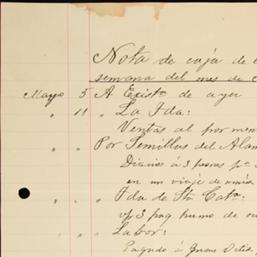 Nota de caja de
semana del mes de
Mayo 5 A Existo de ayer
" 11 " La Fda:
Ventas al por men
" " Por Semillas del Alam
Diarios á 3 pesos pa
en un viaje de
" " " Fda de Sta Cata:
v/ 3 paq humo de
" " " Labor:
Pagado á